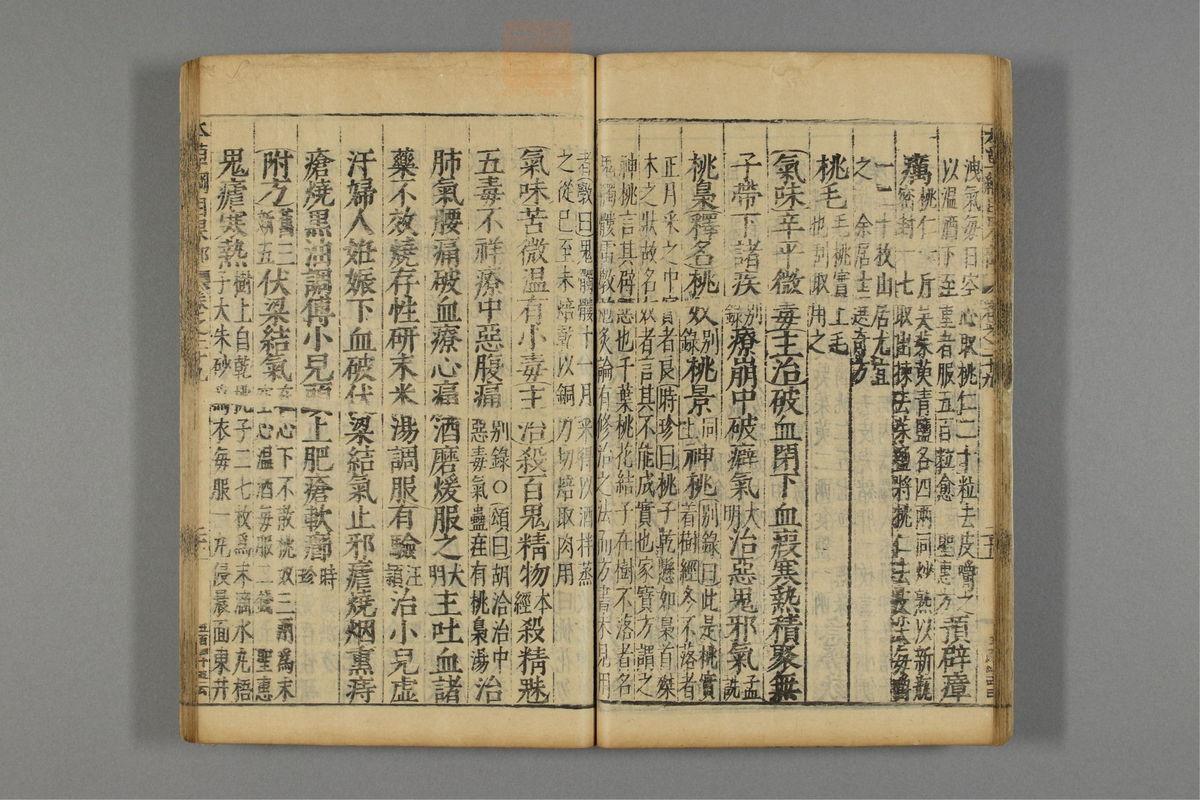 洩氣每日空心取桃仁二十粒去皮嚼之
以溫酒下至重者服五百粒愈聖惠方
預辟瘴
癘
桃仁一斤吳茱萸青鹽各四兩同炒熟以新瓶
密封一七取出揀去茱鹽將桃仁去皮尖每嚼
一二十枚山居尤宜
之余居士選奇方
桃毛毛桃實上毛
也刮取用之
氣味辛平微毒主治破血閉下血瘕寒熱積聚無
子帶下諸疾
別
錄
療崩中破癖氣
大
明
治惡鬼邪氣
孟
詵
桃梟釋名桃奴
別
錄
桃景
同
上
神桃
別錄曰此是桃實
着樹經冬不落者
正月采之中實者良時珍曰桃子乾懸如梟首桀
木之狀故名奴者言其不能成實也家寶方謂之
神桃言其辟惡也千葉桃花結子在樹不落者名
鬼髑髏雷斅炮炙論有修治之法而方書未見用
者斅曰鬼髑髏十一月采得以酒拌蒸
之從巳至未焙乾以銅刀切焙取肉用
氣味苦微溫有小毒主治殺百鬼精物
本
經
殺精魅
五毒不祥療中惡腹痛
別錄○頌曰胡洽治中
惡毒氣蠱疰有桃梟湯
治
肺氣腰痛破血療心痛酒磨煖服之
大
明
主吐血諸
藥不效燒存性研末米湯調服有驗
汪
穎
治小兒虛
汗婦人妊娠下血破伏梁結氣止邪瘧燒烟熏痔
瘡燒黑油調傅小兒頭上肥瘡軟癤
時
珍
附方
舊三
新五
伏梁結氣
在心下不散桃奴三兩為末
空心溫酒每服二錢聖惠
鬼瘧寒熱
樹上自乾桃子二七枚為末滴水丸梧
子大朱砂為衣每服一丸侵晨面東井